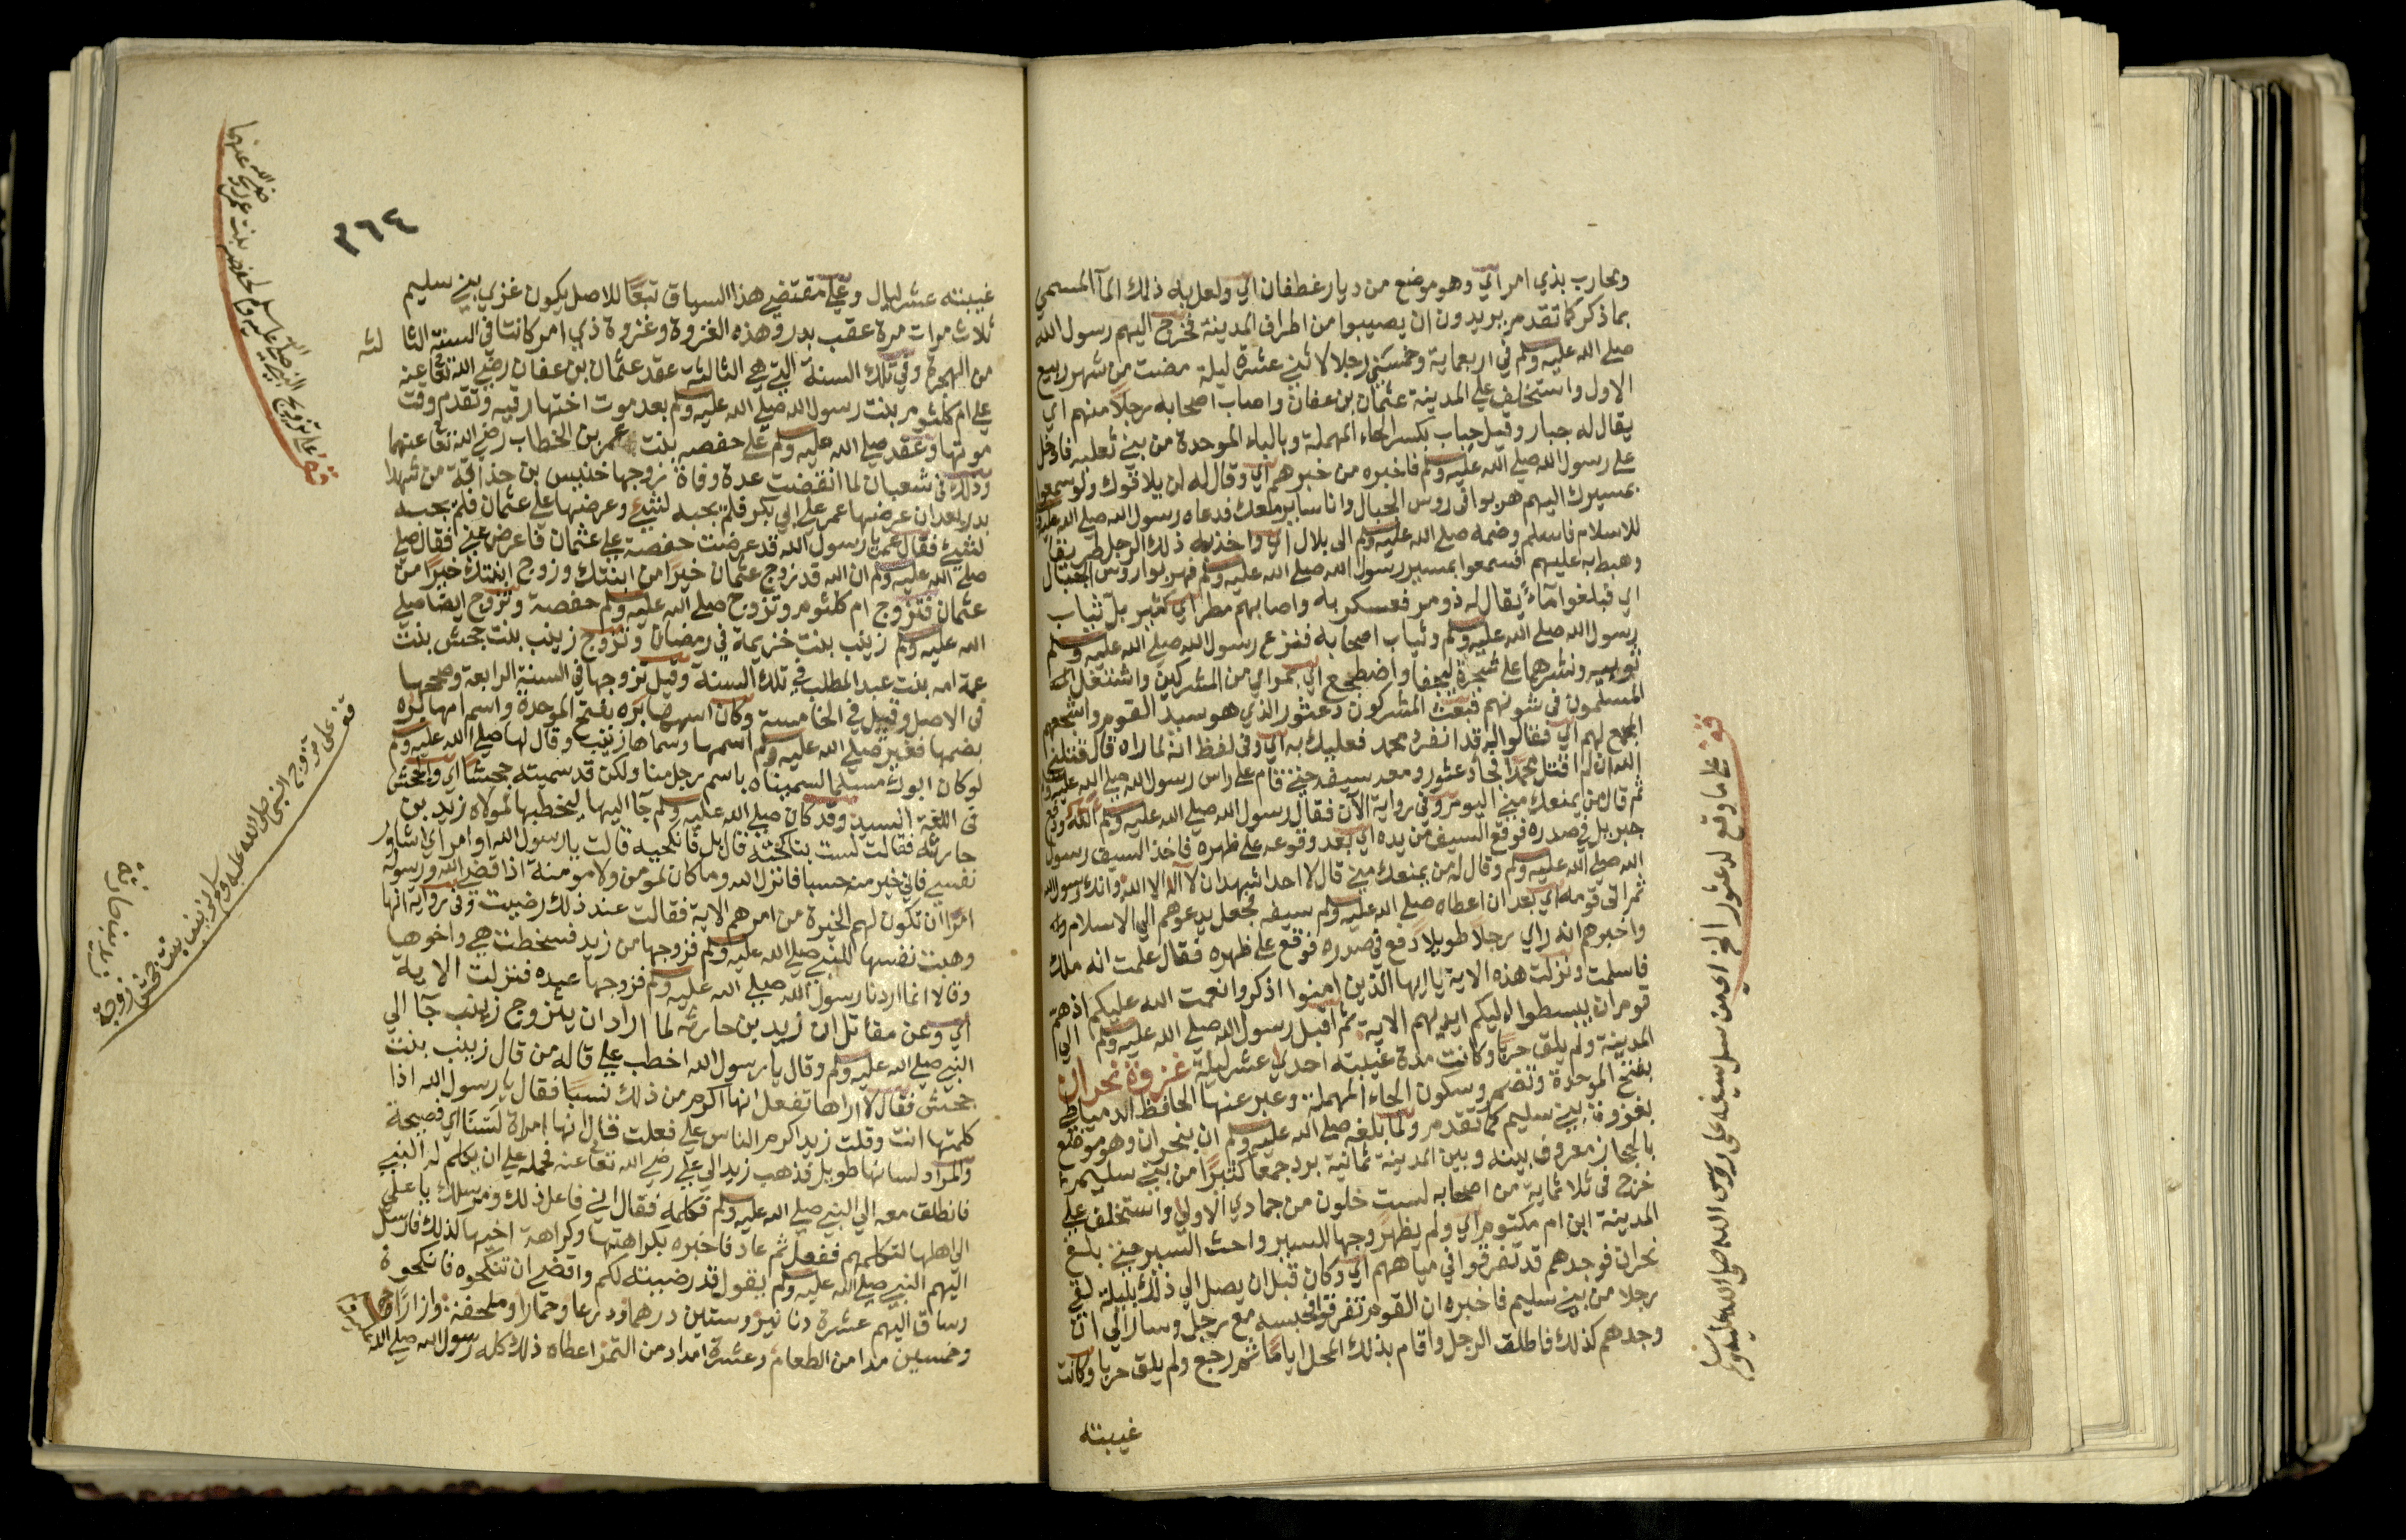 ومحارب بذي امر اي وهو موضع من ديار غطفان اي ولعل به ذلك الماء المسمي
بما ذكر كما تقدم يريدون ان يصيبوا من اطراف المدينة فخرج اليهم رسول الله
صلى الله عليه وسلم في اربعماية وخمسين رجلا لاثني عشرة ليلة مضت من شهر ربيع
الاول واستخلف على المدينة عثمان بن عفان واصاب اصحابه رجلا منهم اي
يقال له جبار وقيل حباب بكسر الحاء المهملة وبالباء الموحدة من بني ثعلبه فادخل
على رسول الله صلى الله عليه وسلم فاخبره من خبرهم اي وقال له لن يلاقوك ولو سمعوا
بمسيرك اليهم هربوا في روس الجبال وانا ساير معك فدعاه رسول الله صلى الله عليه وسلم
للاسلام فاسلم وضمه صلى الله عليه وسلم الى بلال اي واخذ به ذلك الرجل طريقا
وهبط به عليهم فسمعوا بمسير رسول الله صلى الله عليه وسلم فهربوا روس الجبال
اي فبلغوا ماء يقال له ذو امر فعسكر به واصابهم مطر اي كثير بل ثياب
رسول الله صلى الله عليه وسلم وثياب اصحابه فنزع رسول الله صلى الله عليه وسلم
ثوبيه ونشرهما على شجرة ليجفا واضطجع اي بمراي من المشركين واشتغل
المسلمون في شونهم فبعث المشركون دعثور الذي هو سيد القوم واشجعهم
المجمع لهم اي فقالوا له قد انفرد محمد فعليك به اي وفي لفظ انه لما راه قال قتلني
الله ان لم اقتل محمدا فجا دعثور ومعه سيفه حتى قام على راس رسول الله صلى الله عليه وسلم
ثم قال من يمنعك مني اليوم وفي رواية الآن فقال رسول الله صلى الله عليه وسلم الله ودفع
جبريل في صدره فوقع السيف من يده اي بعد وقوعه على ظهره فاخذ السيف رسول
الله صلى الله عليه وسلم وقال له من يمنعك مني قال لا احد اشهد ان لا اله الا الله وانك رسول الله
ثم اتى قومه اي بعد ان اعطاه صلى الله عليه وسلم سيفه فجعل يدعوهم الى الاسلام
واخبرهم انه راي رجلا طويلا دفع في صدره فوقع على ظهره فقال علمت انه ملك
فاسلمت ونزلت هذه الاية يا ايها الذين امنوا اذكروا نعمت الله عليكم اذ هم
قوم ان يبسطوا اليكم ايديهم الاية ثم اقبل رسول الله صلى الله عليه وسلم الى
المدينة ولم يلق حربا وكانت مدة غيبته احدى عشر ليلة غزوة بحران
بفتح الموحدة وتضم وسكون الحاء المهملة وعبر عنها الحافظ الدمياطي
بغزوة بني سليم كما تقدم ولما بلغه صلى الله عليه وسلم ان ببحران وهو موضع
بالحجاز معروف بينه وبين المدينة ثمانية برد جمعا كثيرا من بني سليم
خرج في ثلاثماية من اصحابه لست خلون من جمادي الاولى واستخلف على
المدينة ابن ام مكتوم اي ولم يظهر وجها للسير واحث السير حتى بلغ
بحران فوجدهم قد تفرقوا في مياههم اي وكان قبل ان يصل الى ذلك بليلة لقي
رجلا من بني سليم فاخبره ان القوم تفرقوا فحبسه مع رجل وسار الى ان
وجدهم كذلك فاطلق الرجل واقام بذلك المحل اياما ثم رجع ولم يلق حربا وكانت
غيبته
قف على ما وقع لدعثور الخ اي من سل سيفه على روس الله صلى الله عليه وسلم
٣٦٤
غيبته عشر ليال وعلى مقتضي هذا السياق تبعا للاصل يكون غزي بني سليم
ثلاث مرات مرة عقب بدر وهذه الغزوة وغزوة ذي امر كانتا في السنة الثا لثه
من الهجرة وفي تلك السنة التي هي الثالثة عقد عثمان بن عفان رضي الله تعا عنه
على ام كلثوم بنت رسول الله صلى الله عليه وسلم بعد موت اختها رقيه وتقدم وقت
موتها وعقد صلى الله عليه وسلم على حفصه بنت عمر بن الخطاب رضي الله تعا عنهما
وذلك في شعبان لما انقضت عدة وفاة زوجها خنيس بن حذافة من شهدا
بدر بعد ان عرضها عمر على ابي بكر فلم يجبه لشيء وعرضها على عثمان فلم يجبه
لشيء فقال عمر يا رسول الله قد عرضت حفصة على عثمان فاعرض عني فقال صلى
صلى الله عليه وسلم ان الله قد زوج عثمان خيرا من ابنتك وزوج ابنتك خيرا من
عثمان فتزوج ام كلثوم وتزوج صلى الله عليه وسلم حفصة وتزوج ايضا صلى
الله عليه وسلم زينب بنت خزيمة في رمضان وتزوج زينب بنت جحش بنت
عمة امه بنت عبد المطلب في تلك السنة وقيل تزوجها في السنة الرابعة وصححها
في الاصل وقيل في الخامسة وكان اسمها بره بفتح الموحدة واسم امها بره
بضمها فغير صلى الله عليه وسلم اسمها وسماها زينب وقال لها صلى الله عليه وسلم
لو كان ابوك مسلما لسميناه باسم رجل منا ولكن قد سميته جحشا اي والجحش
في اللغة السيد وقد كان صلى الله عليه وسلم جآ اليها ليخطبها لمولاه زيد بن
حارثه فقالت لست بناكحته قال بل فانكحيه قالت يا رسول الله اوامر اي اشاور
نفسي فاني خير منه حسبا فانزل الله وما كان لمومن ولا مومنة اذا قضى الله ورسوله
امرا ان تكون لهم الخيرة من امرهم الاية فقالت عند ذلك رضيت وفي رواية انها
وهبت نفسها للنبي صلى الله عليه وسلم فزوجها من زيد فسخطت هي واخوها
وقالا انما اردنا رسول الله صلى الله عليه وسلم فزوجها عبده فنزلت الاية
اي وعن مقاتل ان زيد بن حارثه لما اراد ان يتزوج زينب جآ الي
النبي صلى الله عليه وسلم وقال يا رسول الله اخطب علي قال له من قال زينب بنت
جحش فقال لا اراها تفعل انها اكرم من ذلك نسبا فقال يا رسول الله اذا
كلمتها انت وقلت زيد اكرم الناس علي فعلت قال انها امراة لسنا اي فصيحة
والمراد لسانها طويل فذهب زيد الي علي رضي الله تعا عنه فحمله على ان يكلم له النبي
فانطلق معه الي النبي صلى الله عليه وسلم فكلمه فقال اني فاعل ذلك ومرسلك يا علي
الي اهلها لتكلمهم ففعل ثم عاد فاخبره بكراهتها وكراهة اخيها لذلك فارسل
اليهم النبي صلى الله عليه وسلم يقول قد رضيته لكم واقضي ان تنكحوه فانكحوه
وساق اليهم عشرة دنانير وستين درهما ودرعا وخمارا وملحفة وازارا
وخمسين مدا من الطعام وعشرة امداد من التمر اعطاه ذلك كله رسول الله صلى الله
قف على تزويج النبي صلى الله عليه وسلم لحفصه بنت عمر رضي الله عنهما
قف على تزوج النبي صلى الله عليه وسلم لزينب بنت جحش زوجة
زيد بن حارثة